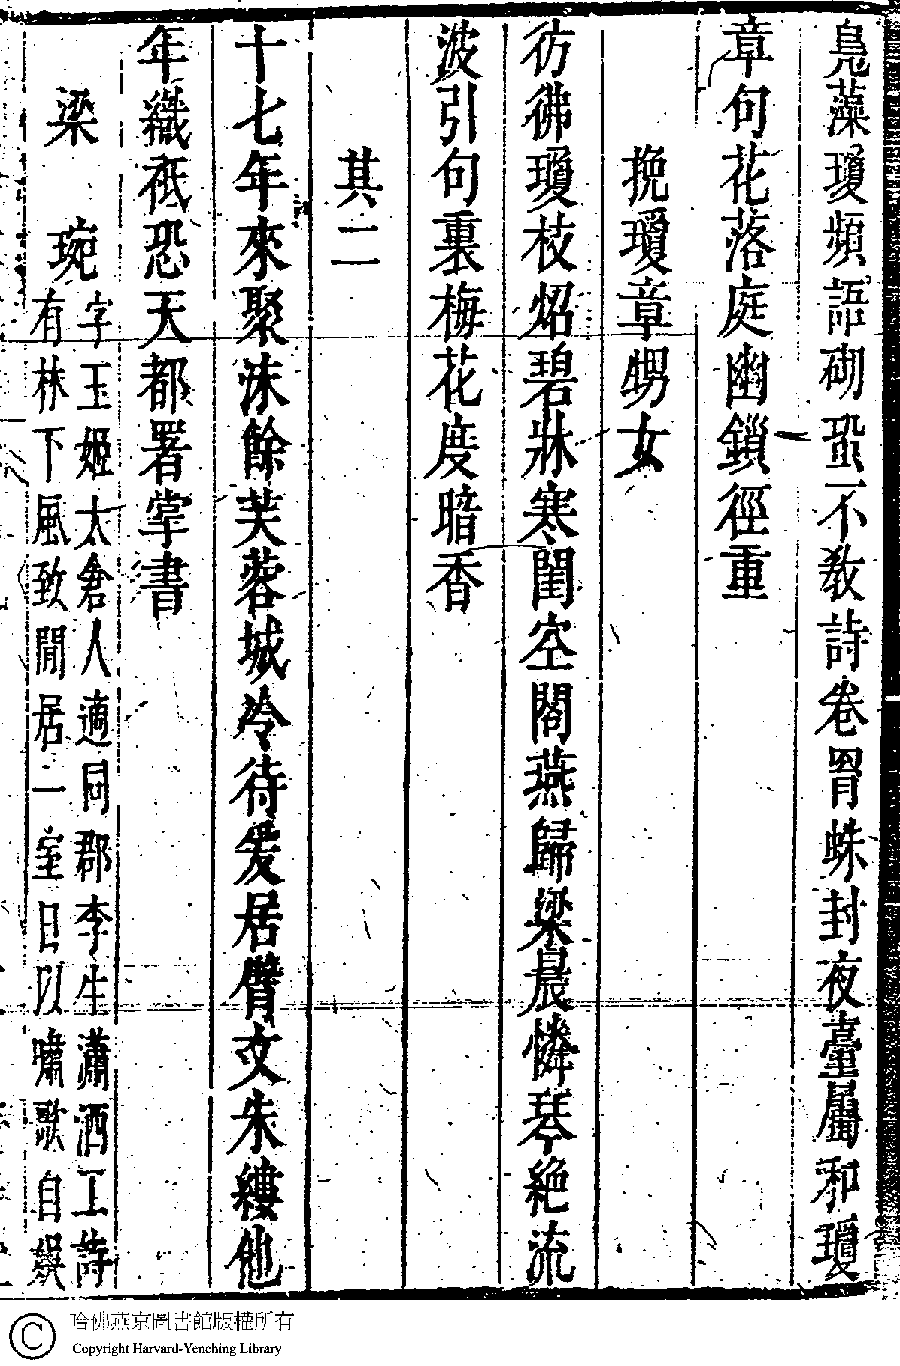 鳧藻瓊頻語砌蛩不教詩卷罥蛛封夜臺屬和瓊
章句花落庭幽鎖徑重
挽瓊章甥女
彷彿瓊枝炤碧牀寒閨空閣燕歸梁晨憐琴絕流
波引句裏梅花度暗香
其二
十七年來聚沫餘芙蓉城冷待爰居臂文朱縷他
年織祇恐天都署掌書
梁琬
字玉姬太倉人適同郡李生瀟洒工詩
有林下風致閒居一室日以嘯歌自娛
哈佛燕京圖書館版權所有
Copyright Harvard-Yenching Library